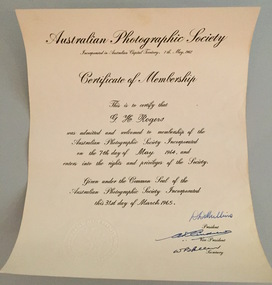 Australian Photographic Society
Incorporated in Australian Capital Territory, 7th May, 1962
Certificate of Membership
This is to certify that
G H Rogers
was admitted and welcomed to membership of the
Australian Photographic Society Incorporated
on the 7th day of May 1964, and
enters into the rights and privileges of the Society.
Given under the Common Seal of the
Australian Photographic Society Incorporated
this 31st day of March 1965.
President
Vice President
Secretary